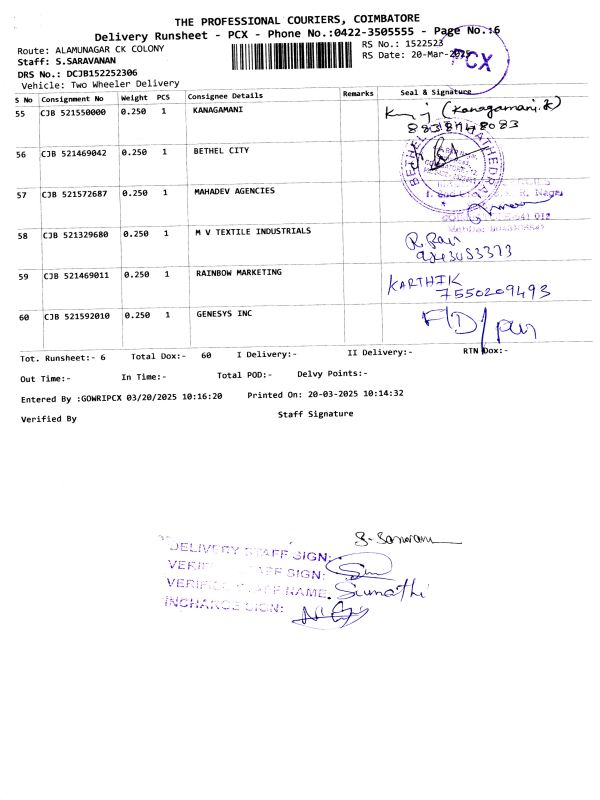 THE PROFESSIONAL COURIERS, COIMBATORE
Delivery Runsheet - PCX - Phone No.:0422-3505555 - Page No.:6
Route: ALAMUNAGAR CK COLONY
RS No.: 1522523
Staff: S.SARAVANAN
RS Date: 20-Mar-2025
PCX
DRS No.: DCJB152252306
Vehicle: Two Wheeler Delivery
S No Consignment No Weight PCS Consignee Details Remarks Seal & Signature
55 CJB 521550000 0.250 1 KANAGAMANI (Kanagamani.K)
8838748083
56 CJB 521469042 0.250 1 BETHEL CITY
BETHEL CATHEDRAL
57 CJB 521572687 0.250 1 MAHADEV AGENCIES
R. Nagar
641 012
58 CJB 521329680 0.250 1 M V TEXTILE INDUSTRIALS
59 CJB 521469011 0.250 1 RAINBOW MARKETING KARTHIK
7550209493
60 CJB 521592010 0.250 1 GENESYS INC
Tot. Runsheet:- 6 Total Dox:- 60 I Delivery:- II Delivery:- RTN Dox:-
Out Time:- In Time:- Total POD:- Delvy Points:-
Entered By :GOWRIPCX 03/20/2025 10:16:20 Printed On: 20-03-2025 10:14:32
Verified By Staff Signature
DELIVERY STAFF SIGN:
STAFF SIGN:
STAFF NAME. Sumathi
INCHARGE SIGN: